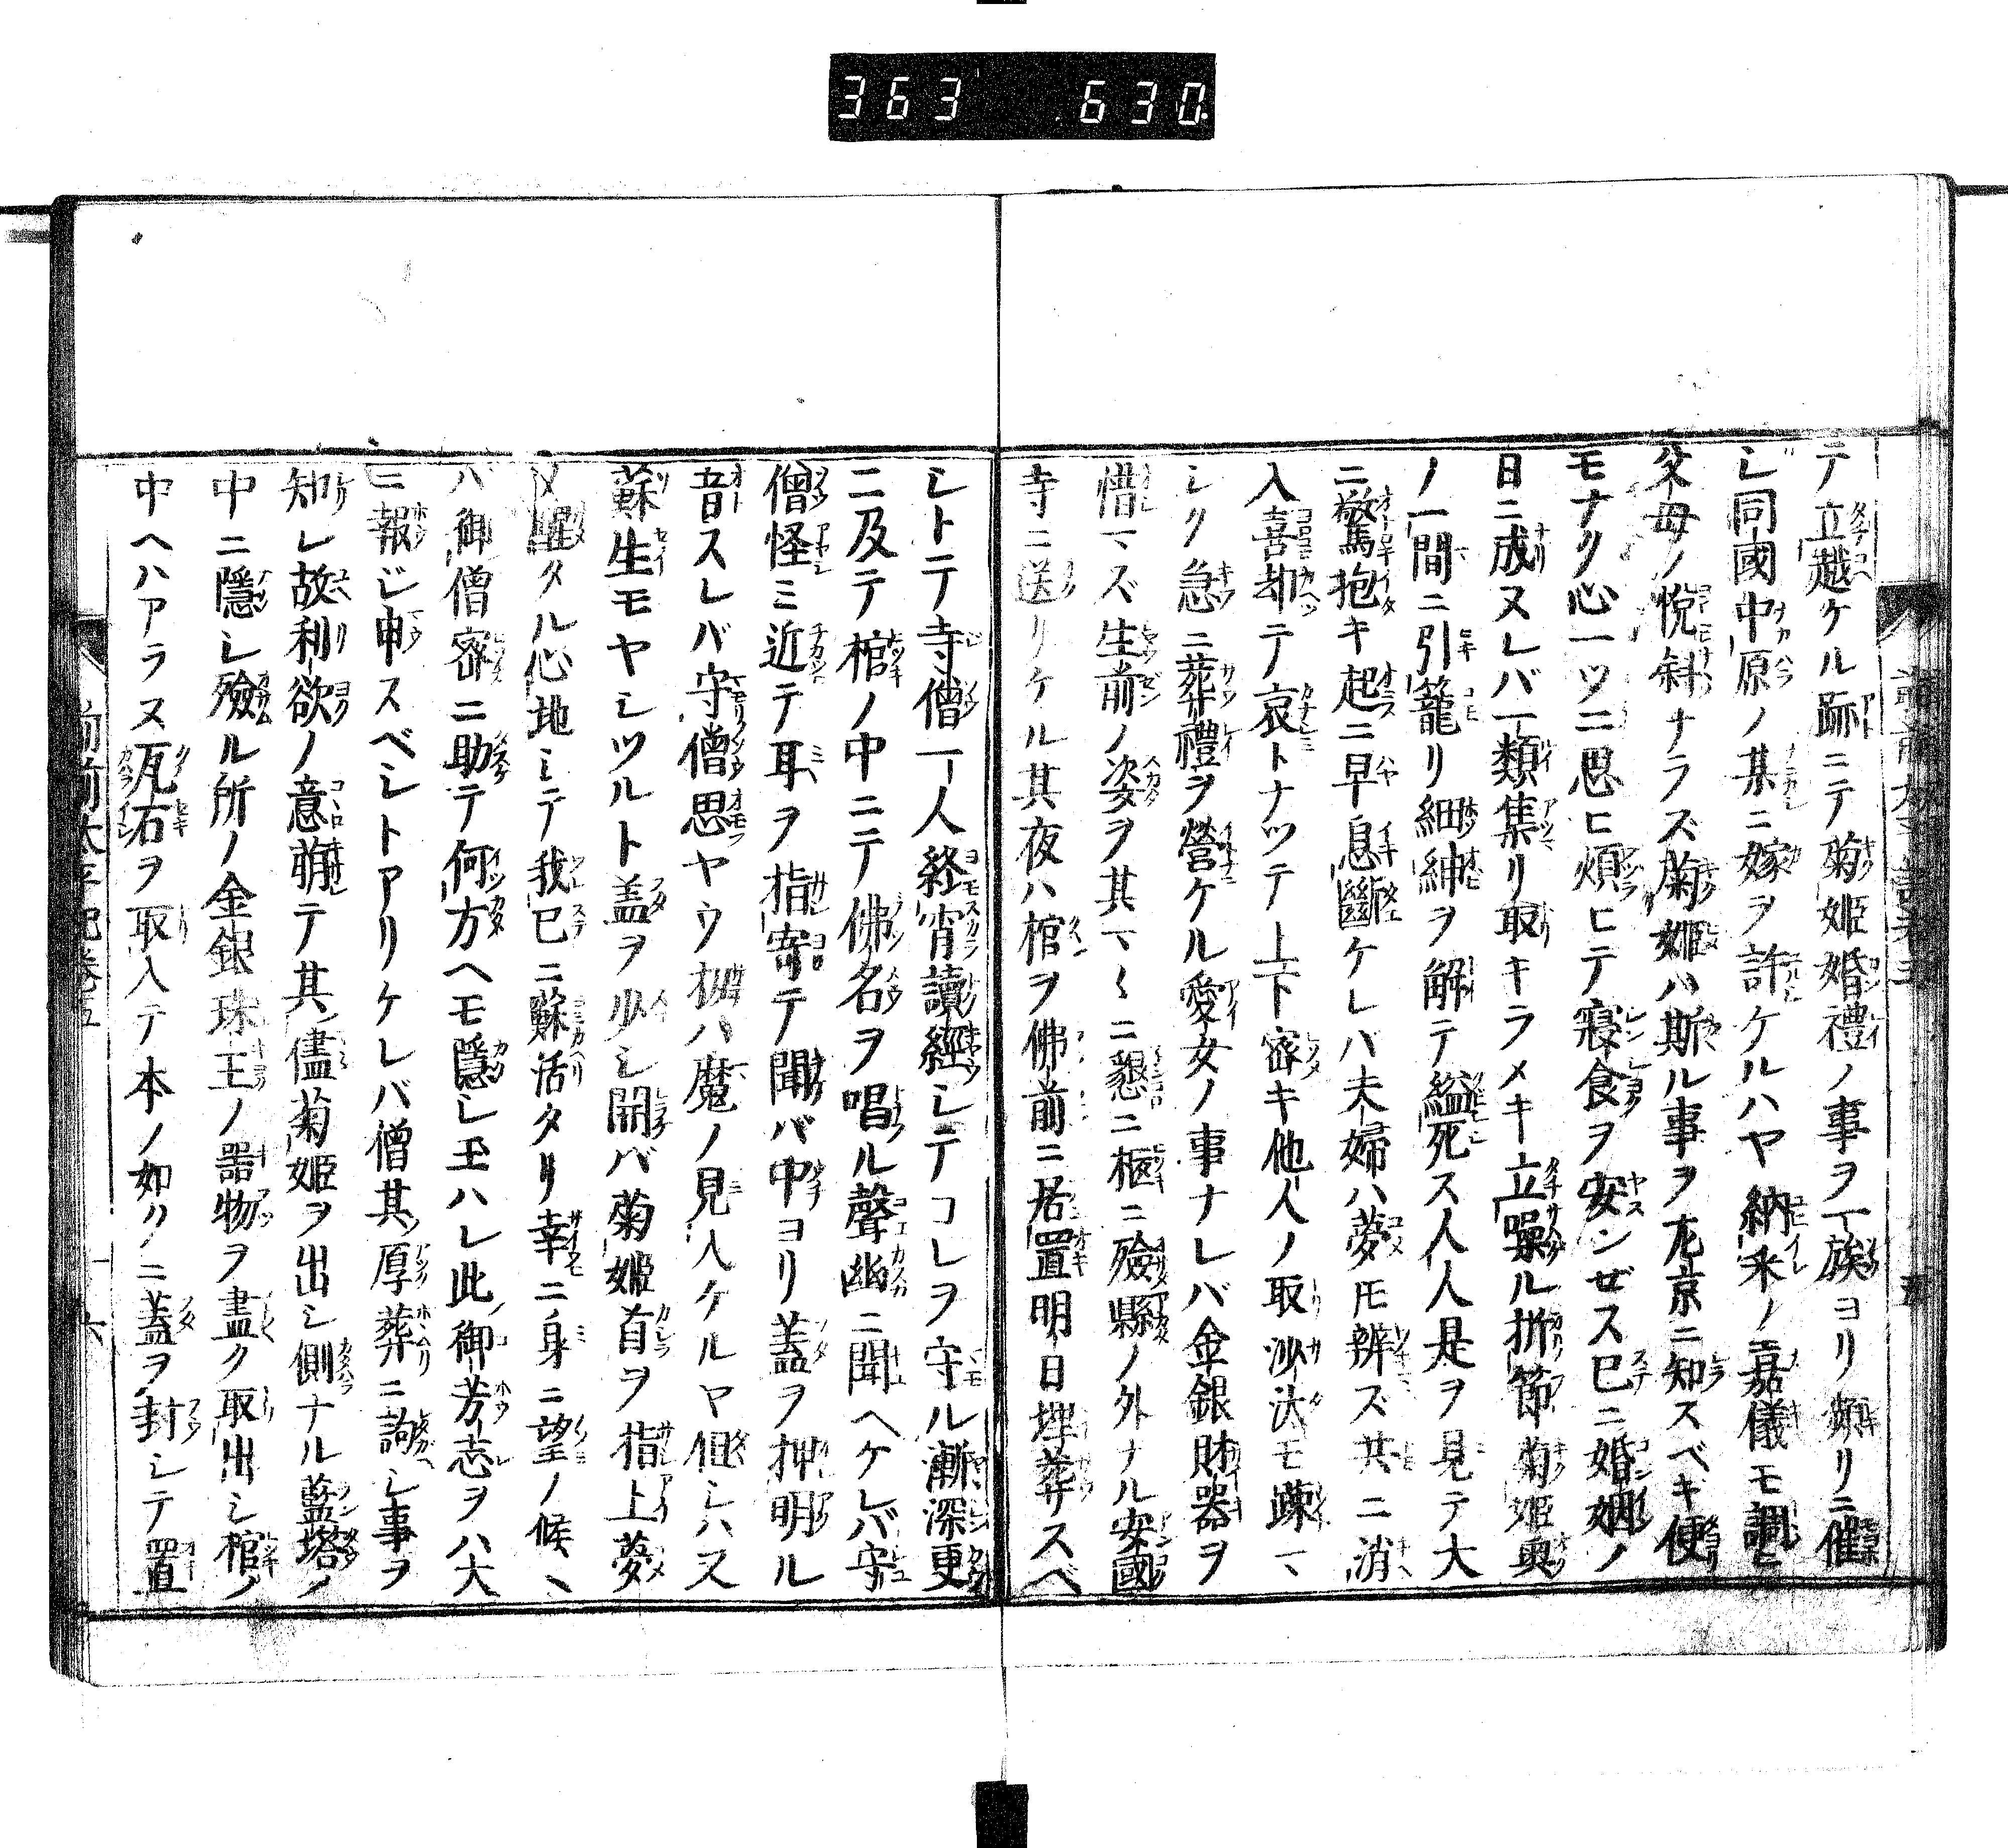 363 630
テ立越ケル跡ニテ菊姫婚禮ノ事ヲ一族ヨリ頻リニ催
シ同國中原ノ某ニ嫁ヲ許ケルハヤ納来ノ嘉儀モ調ヒ
父母ノ悦斜ナラズ菊姫ハ斯ル事ヲ左京ニ知スベキ便
モナク心一ツニ思ヒ煩ヒテ寝食ヲ安ンゼス已ニ婚姻ノ
日ニ成ヌレバ一類集リ取キラメキ立噪ル折節菊姫奥
ノ一間ニ引籠リ細紳ヲ解テ縊死ス人人是ヲ見テ大
ニ驚抱キ起ニ早息幽ケレバ夫婦ハ夢モ辨ズ共ニ消
入喜却テ哀トナツテ上下密キ他人ノ取沙汰モ疎マ
シク急ニ葬禮ヲ營ケル愛女ノ事ナレバ金銀財器ヲ
惜マズ生前ノ姿ヲ其マヽニ懇ニ柩ニ殮縣ノ外ナル安國
寺ニ送リケル其夜ハ棺ヲ佛前ニ居置明日埋葬サスベ
シトテ寺僧一人終宵讀經シテコレヲ守ル漸深更
ニ及テ棺ノ中ニテ佛名ヲ唱ル聲幽ニ聞ヘケレバ守
僧怪ミ近テ耳ヲ指寄テ聞バ中ヨリ蓋ヲ押明ル
音スレバ守僧思ヤウ扨ハ魔ノ見入ケルヤ但シハス
蘇生モヤシツルト蓋ヲ少シ開バ菊姫首ヲ指上夢
メ醒タル心地シテ我已ニ蘇活タリ幸ニ身ニ望ノ候ヘ
バ御僧密ニ助テ何方ヘモ隱シ玉ハレ此御芳志ヲハ大
ニ報ジ申スベシトアリケレバ僧其厚葬ニ詢シ事ヲ
知レ故利欲ノ意萠テ其儘菊姫ヲ出シ側ナル藍塔ノ
中ニ隱シ殮ル所ノ金銀珠玉ノ器物ヲ盡ク取出シ棺ノ
中ヘハアラヌ瓦石ヲ取入テ本ノ如クニ蓋ヲ封シテ置
前前太平記卷五 六